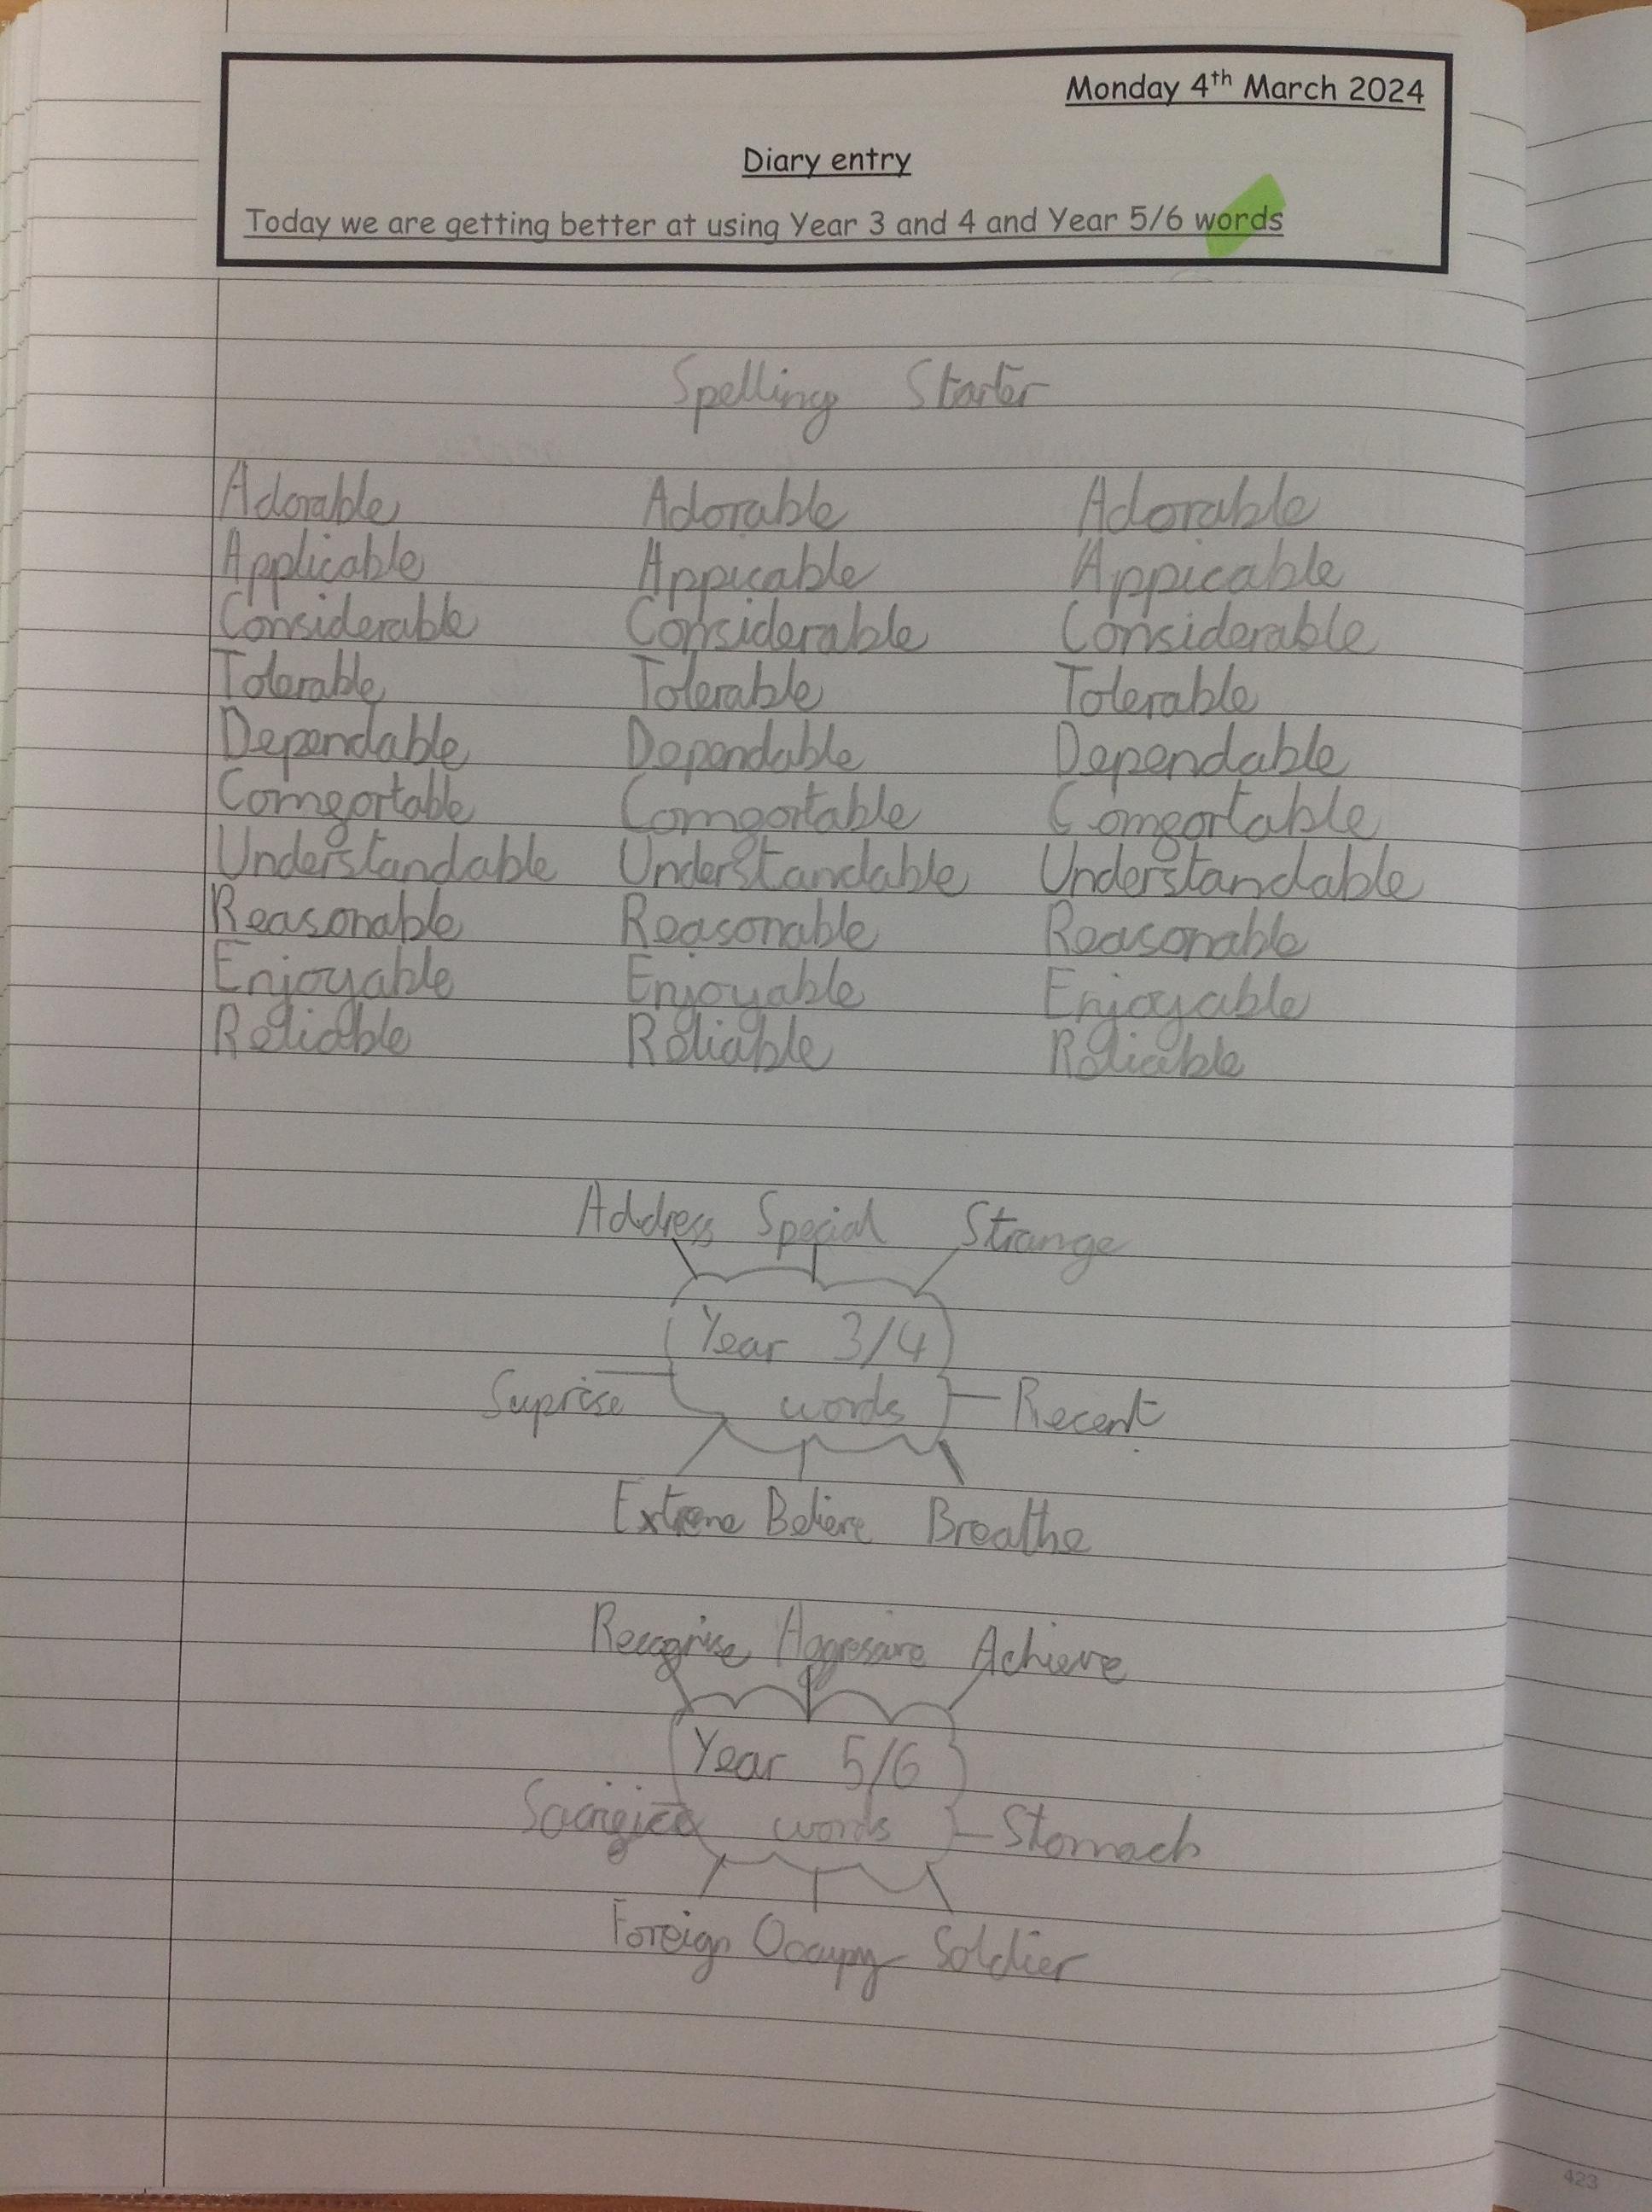 Monday 4th March 2024
Diary entry
Today we are getting better at using Year 3 and 4 and Year 5/6 words
Spelling Starter
Adorable Adorable Adorable
Applicable Appicable Appicable
Considerable Considerable Considerable
Tolerable Tolerable Tolerable
Dependable Dependable Dependable
Comfortable Comfortable Comfortable
Understandable Understandable Understandable
Reasonable Reasonable Reasonable
Enjoyable Enjoyable Enjoyable
Reliable Reliable Reliable
Address Special Strange
Year 3/4
Suprise words Recent
Extreme Believe Breathe
Recognise Aggresive Achieve
Year 5/6
Sacrifice words Stomach
Foreign Occupy Soldier
423